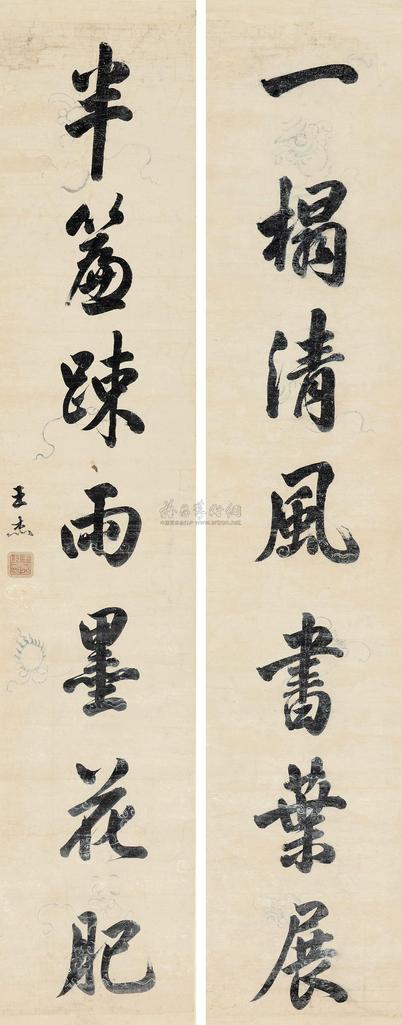 一榻清風書葉展
半簾疎雨墨花肥
王杰
www.artron.net